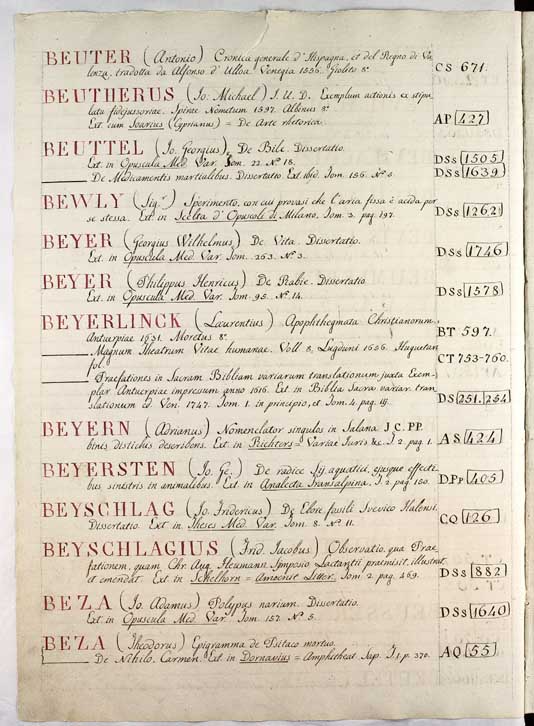 BEUTER (Antonio) Cronica generale d'Hispagna, et del Regno di Va-
lenza, tradotta da Alfonso d'Ulloa. Venegia 1556. Giolito 8°. CS 671.
BEUTHERUS (Jo. Michael) I. U. D. Exemplum actionis ex stipu-
latu fidejussoriae. Spirae Nemetum 1597. Albinus 8°.
Ext. cum Soarius (Cyprianus) = De Arte rhetorica. AP 427
BEUTTEL (Jo. Georgius) De Bile. Dissertatio.
Ext. in Opuscula Med. Var. Tom. 22. N° 18. DSs 1505
De Medicamentis martialibus. Dissertatio. Ext. ibid. Tom. 186. N° 4. DSs 1639
BEWLY (Sig.r) Sperimento, con cui provasi che l'aria fissa è acida per
se stessa. Ext. in Scelta d'Opuscoli di Milano. Tom. 3. pag. 197. DSs 1262
BEYER (Georgius Wilhelmus) De Vita. Dissertatio.
Ext. in Opuscula Med. Var. Tom. 263. N° 3. DSs 1746
BEYER (Philippus Henricus) De Rabie. Dissertatio.
Ext. in Opuscula Med. Var. Tom. 95. N° 14. DSs 1578
BEYERLINCK (Laurentius) Apophthegmata Christianorum.
Antuerpiae 1631. Moretus 8°. BT 597.
Magnum Theatrum Vitae humanae. Voll. 8. Lugduni 1656. Huguetan
fol. CT 753-760.
Praefationes in Sacram Bibliam variarum translationum juxta Exem-
plar Antuerpiae impressum anno 1616. Ext. in Biblia Sacra variar. tran-
slationum ed. Ven. 1747. Tom. 1. in principio, et Tom. 4. pag. DS 251.254
BEYERN (Adrianus) Nomenclator singulos in Salana J.C. PP.
binis distichis describens. Ext. in Richters = Variae Iuris &c. T. 2. pag. 1. AS 424
BEYERSTEN (Jo. Ge.) De radice Sij aquatici, ejusque effecti-
bus sinistris in animalibus. Ext. in Analecta Transalpina. T. 2. pag. 150. DPp 405
BEYSCHLAG (Jo. Fridericus) De Ebore fossili Svevico Halensi.
Dissertatio. Ext. in Theses Med. Var. Tom. 8. N° 11. CQ 126
BEYSCHLAGIUS (Frid. Jacobus) Observatio, qua Prae-
fationem, quam Chr. Aug. Heumann Symposio Lactantii praemisit, illustrat
et emendat. Ext. in Schelhorn = Amoenit. Litter. Tom. 2. pag. 469. DSs 882
BEZA (Jo. Adamus) Polypus narium. Dissertatio.
Ext. in Opuscula Med. Var. Tom. 157. N° 5. DSs 1640
BEZA (Theodorus) Epigramma de Psitaco mortuo.
De Nihilo. Carmen. Ext. in Dornavius = Amphitheat. Sap. T. 1. p. 370. AQ 55